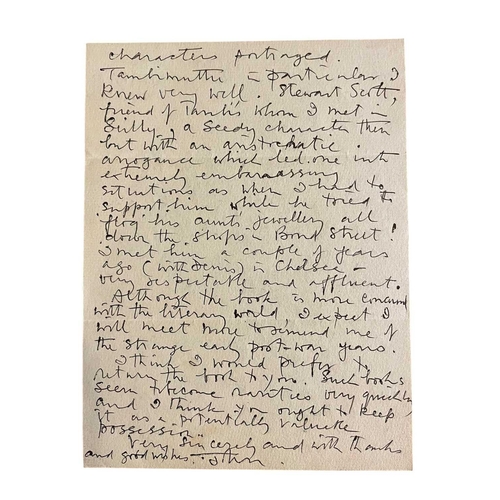 characters portrayed.
Tambimuttu in particular I
knew very well. Stewart Scott,
friend of Tambi's whom I met in
Scilly, a seedy character then
but with an aristocratic
arrogance which led one into
extremely embarassing
situations as when I had to
support him while he tried to
flog his aunt's jewellery all
down the shops in Bond Street!
I met him a couple of years
ago (with Denis) in Chelsea –
very respectable and affluent.
Although the book is more concerned
with the literary world, I expect I
will meet more to remind me of
the strange early post-war years.
I think I would prefer to
return the book to you. Such books
seem to become rarities very quickly
and I think you ought to keep
it as a potentially valuable
possession.
Very sincerely and with thanks
and good wishes. John.